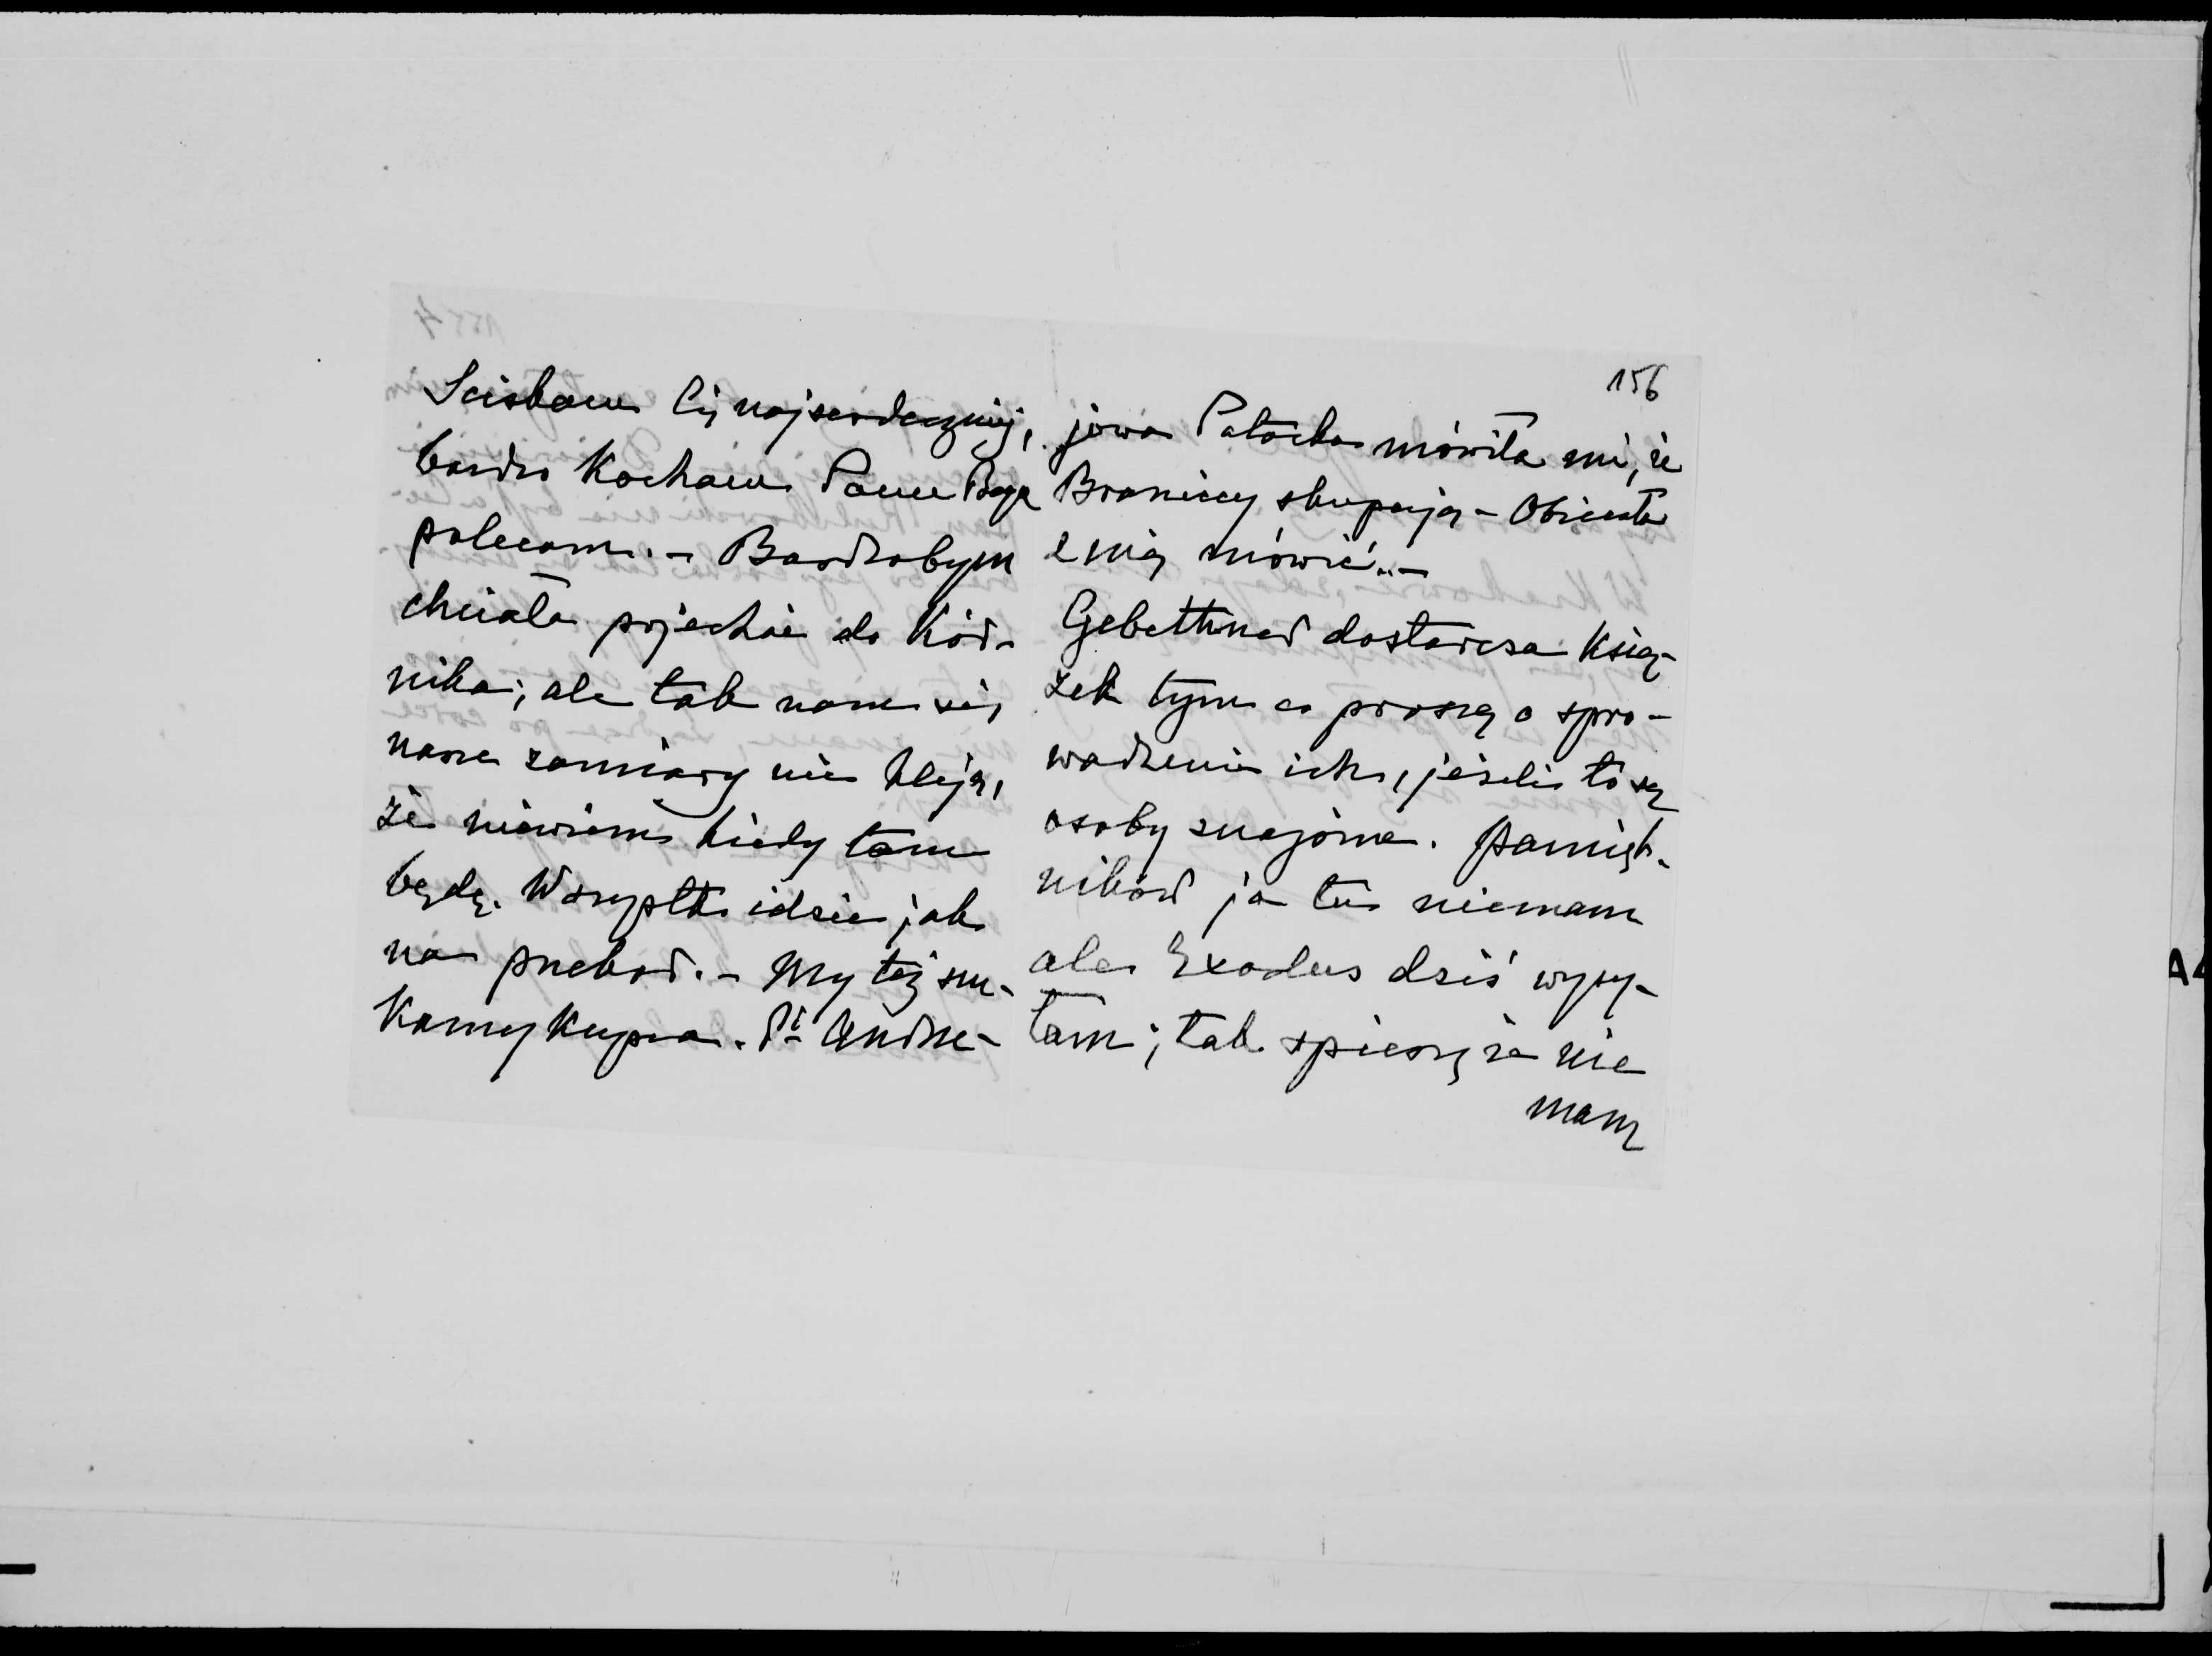 Sciskam Cię najserdeczniej,
bardzo Kocham Panu Bogu
polecam. – Bardzobym
chciała pojechać do Kór-
nika, ale tak nam się,
nasze zamiary nie kleją,
że niewiem kiedy tam
będę. Wszystko idzie jak
na przekor. – My też szu-
kamy Kupca. Pi Andrze-
156
jowa Potocka mówiła mi, że
Braniccy skupują – Obiecała
z nią mówić. –
Gebethner dostarcza Książ-
żek tym co proszą o spro-
wadzenie ich, jeżeli to są
osoby znajome. Pamięt-
ników ja tu niemam
ale Exodus dziś wypy-
tam; tak spieszę że nie
mam